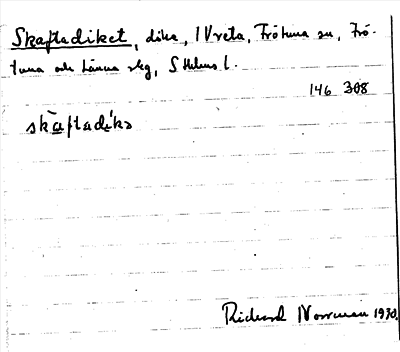 Skaftadiket, dike, 1 Vreta, Frötuna sn, Frö-
tuna och Länna skg, S Uhlms l.
146 308
skaftadikə
Richard Norrman 1930.